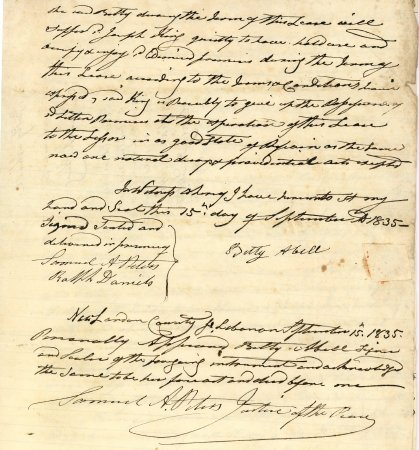 the said Betty during the Term of this Lease will
suffer sd Joseph King quietly to have hold use and
occupy & enjoy sd Demised premises during the Term of
this Lease according to the Terms & Conditions herein
& sd King is to give up the
premises at the expiration of this Lease
to the Lessor in as good State of Repair as the same
now are natural decay & providential acts excepted
In Witness whereof I have hereunto set my
hand and Seal this 15th day of September AD 1835—
Signed Sealed and
delivered in presence of
Samuel A. Peters
Ralph Daniels
Betty Abell
New London County ss Lebanon September 15th 1835.
Personally Appeared Betty Abell Signer
and Sealer of the foregoing instrument and acknowledged
the same to be her free act and deed before me—
Samuel A. Peters Justice of the Peace